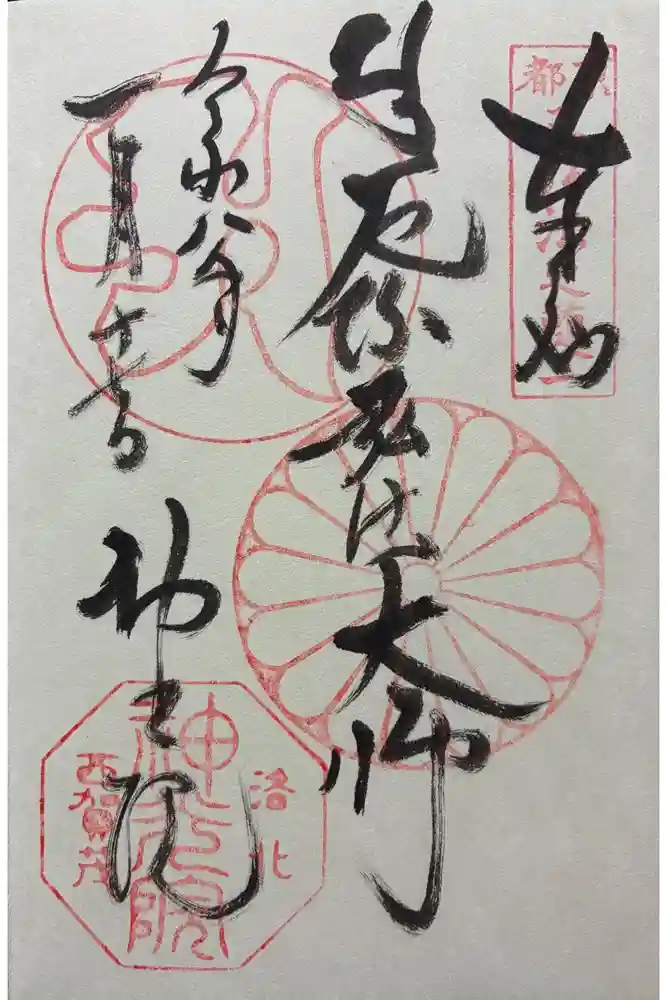 奉拝
厄除弘法大師
令和八年
一月十
神光院
都
洛北
神光院
西賀茂